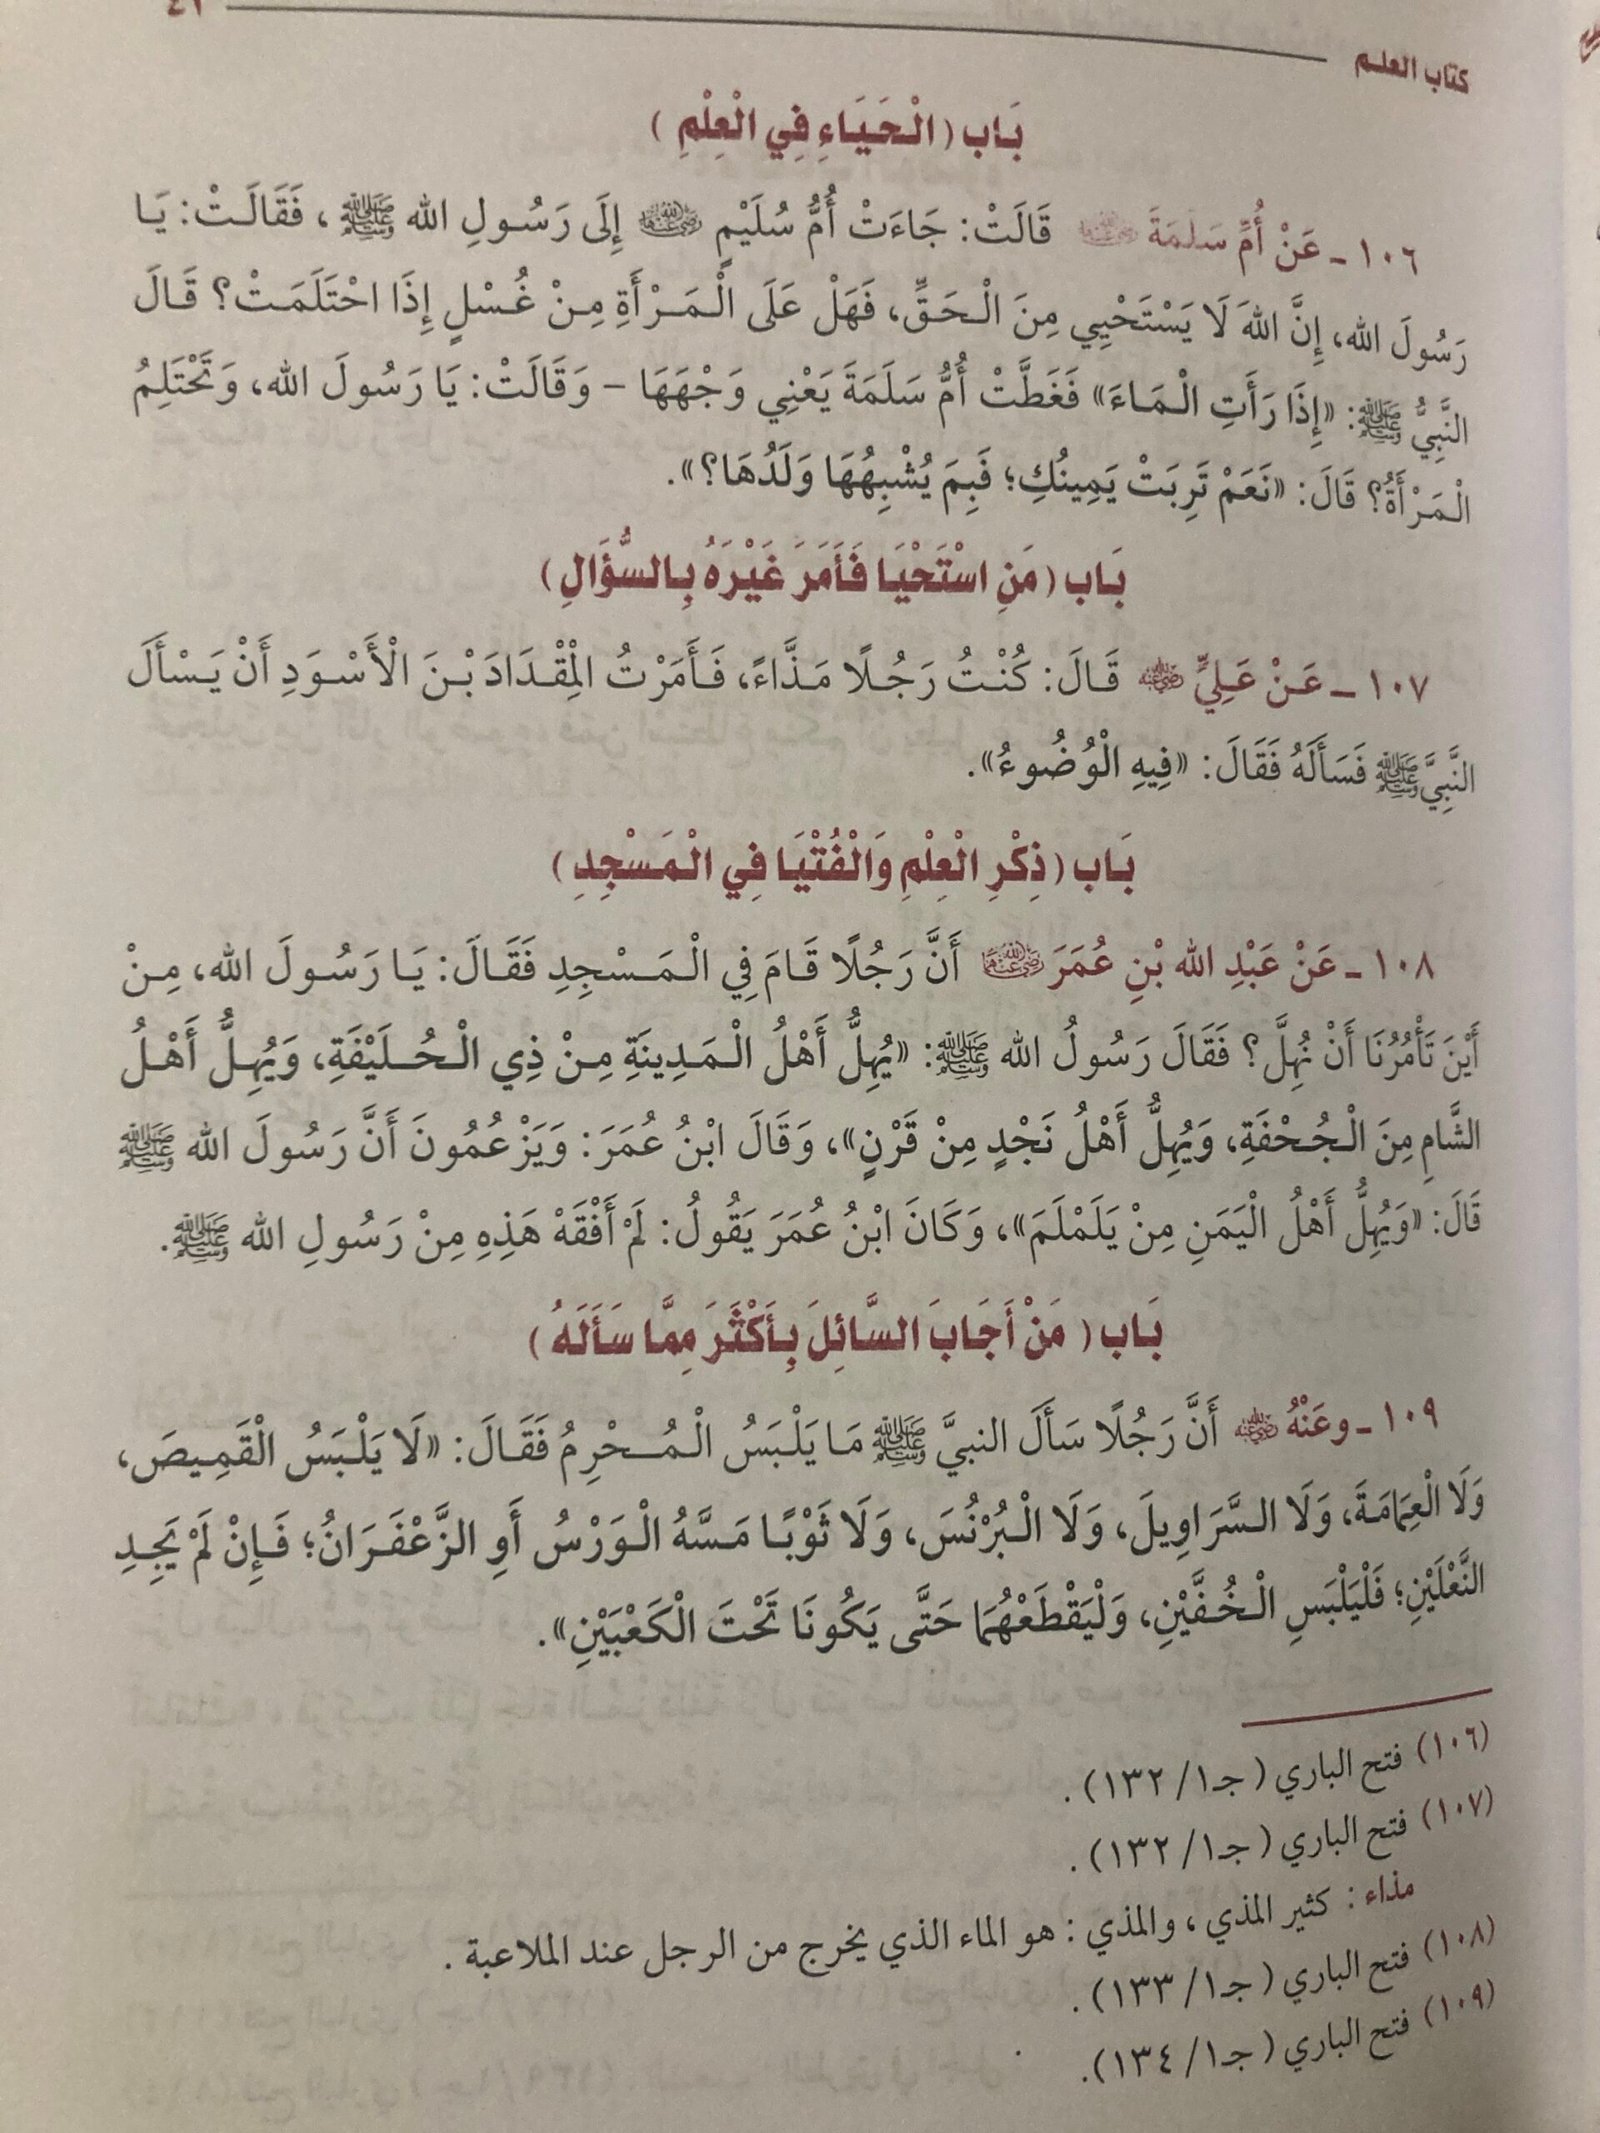 كتاب العلم
بَاب ( الْحَيَاءِ فِي الْعِلْمِ )
١٠٦ ـ عَنْ أُمِّ سَلَمَةَ رضي الله عنها قَالَتْ: جَاءَتْ أُمُّ سُلَيْمٍ رضي الله عنها إِلَى رَسُولِ الله ﷺ ، فَقَالَتْ: يَا
رَسُولَ الله، إِنَّ اللهَ لَا يَسْتَحْيِي مِنَ الْحَقِّ، فَهَلْ عَلَى الْمَرْأَةِ مِنْ غُسْلٍ إِذَا احْتَلَمَتْ؟ قَالَ
النَّبِيُّ ﷺ: «إِذَا رَأَتِ الْمَاءَ» فَغَطَّتْ أُمُّ سَلَمَةَ يَعْنِي وَجْهَهَا – وَقَالَتْ: يَا رَسُولَ الله، وَتَحْتَلِمُ
الْمَرْأَةُ؟ قَالَ: «نَعَمْ تَرِبَتْ يَمِينُكِ؛ فَبِمَ يُشْبِهُهَا وَلَدُهَا؟».
بَاب ( مَنِ اسْتَحْيَا فَأَمَرَ غَيْرَهُ بِالسُّؤَالِ )
١٠٧ ـ عَنْ عَلِيٍّ رضي الله عنه قَالَ: كُنْتُ رَجُلًا مَذَّاءً، فَأَمَرْتُ الْمِقْدَادَ بْنَ الْأَسْوَدِ أَنْ يَسْأَلَ
النَّبِيَّ ﷺ فَسَأَلَهُ فَقَالَ: «فِيهِ الْوُضُوءُ».
بَاب ( ذِكْرِ الْعِلْمِ وَالْفُتْيَا فِي الْمَسْجِدِ )
١٠٨ ـ عَنْ عَبْدِ الله بْنِ عُمَرَ رضي الله عنهما أَنَّ رَجُلًا قَامَ فِي الْمَسْجِدِ فَقَالَ: يَا رَسُولَ الله، مِنْ
أَيْنَ تَأْمُرُنَا أَنْ نُهِلَّ؟ فَقَالَ رَسُولُ الله ﷺ: «يُهِلُّ أَهْلُ الْمَدِينَةِ مِنْ ذِي الْحُلَيْفَةِ، وَيُهِلُّ أَهْلُ
الشَّامِ مِنَ الْجُحْفَةِ، وَيُهِلُّ أَهْلُ نَجْدٍ مِنْ قَرْنٍ»، وَقَالَ ابْنُ عُمَرَ: وَيَزْعُمُونَ أَنَّ رَسُولَ الله ﷺ
قَالَ: «وَيُهِلُّ أَهْلُ الْيَمَنِ مِنْ يَلَمْلَمَ»، وَكَانَ ابْنُ عُمَرَ يَقُولُ: لَمْ أَفْقَهْ هَذِهِ مِنْ رَسُولِ الله ﷺ.
بَاب ( مَنْ أَجَابَ السَّائِلَ بِأَكْثَرَ مِمَّا سَأَلَهُ )
١٠٩ ـ وعَنْهُ رضي الله عنه أَنَّ رَجُلًا سَأَلَ النبيَّ ﷺ مَا يَلْبَسُ الْمُحْرِمُ فَقَالَ: «لَا يَلْبَسُ الْقَمِيصَ،
وَلَا الْعِمَامَةَ، وَلَا السَّرَاوِيلَ، وَلَا الْبُرْنُسَ، وَلَا ثَوْبًا مَسَّهُ الْوَرْسُ أَوِ الزَّعْفَرَانُ؛ فَإِنْ لَمْ يَجِدِ
النَّعْلَيْنِ؛ فَلْيَلْبَسِ الْخُفَّيْنِ، وَلْيَقْطَعْهُمَا حَتَّى يَكُونَا تَحْتَ الْكَعْبَيْنِ».
(١٠٦) فتح الباري ( جـ١/ ١٣٢) .
(١٠٧) فتح الباري ( جـ١/ ١٣٢) .
مذاء : كثير المذي ، والمذي : هو الماء الذي يخرج من الرجل عند الملاعبة .
(١٠٨) فتح الباري ( جـ١/ ١٣٣) .
(١٠٩) فتح الباري ( جـ١/ ١٣٤).